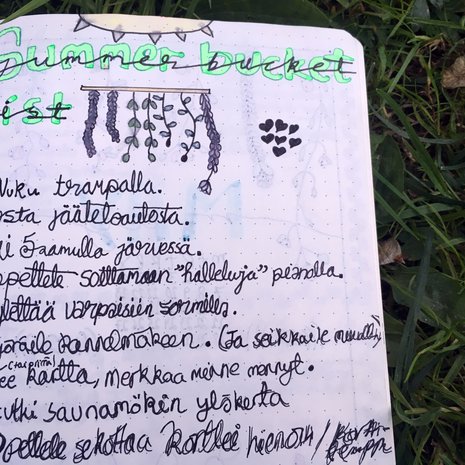 Summer bucket
ist
Nuku trampalla.
sta jäätelöautosta.
i 5 aamulla järvessä.
opettele soittamaan "halleluja" pianolla.
ylettää varpaisiin sormilla.
Kannelmäkeen. (Ja seikkaile muualla)
ee kartta, merkkaa minne mennyt.
utki saunamökin yläkerta
Opettele sekottaa kortteja hienosti /